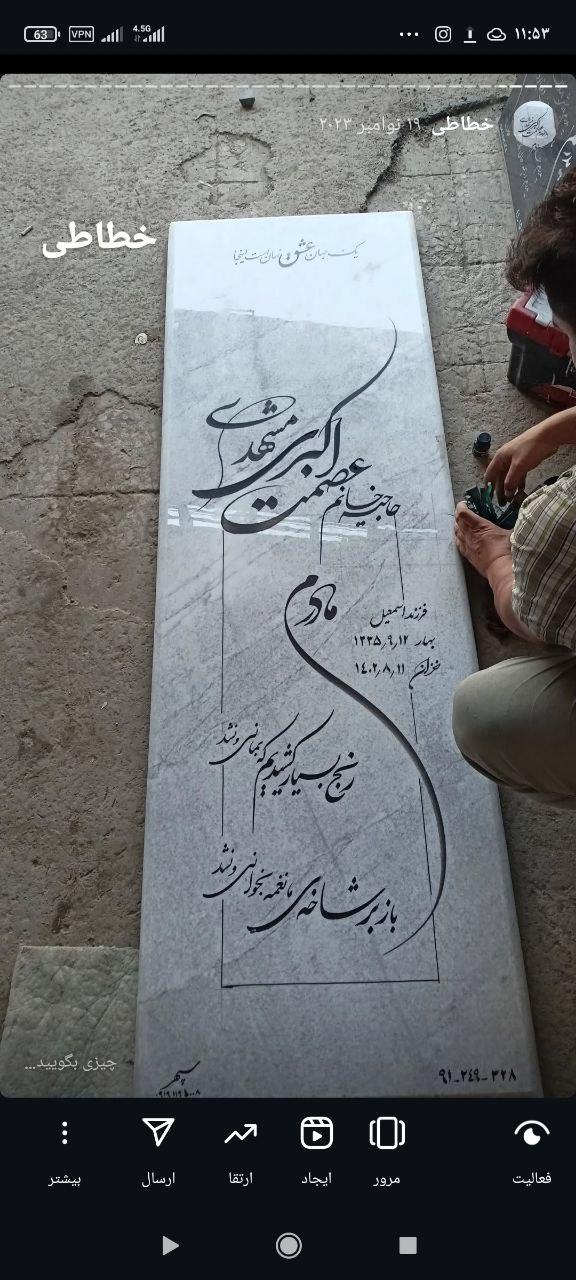 ۱۱:۵۳
4.5G
VPN
63
خطاطی ۱۹ نوامبر ۲۰۲۳
خطاطی
یک جهان عشق نهان است اینجا
حاجیه خانم
عصمت اکبری مشهدی
فرزند اسمعیل
بهار ۱۳۳۵٫۹٫۱۲
خزان ۱۴۰۲٫۸٫۱۱
مادرم
رنج بسیار کشیدیم که بمانی و نشد
باز بر شاخه ی ما نغمه بخوانی و نشد
۹۱-۲۴۹-۳۲۸
سپهر
چیزی بگویید...
فعالیت
مرور
ایجاد
ارتقا
ارسال
بیشتر